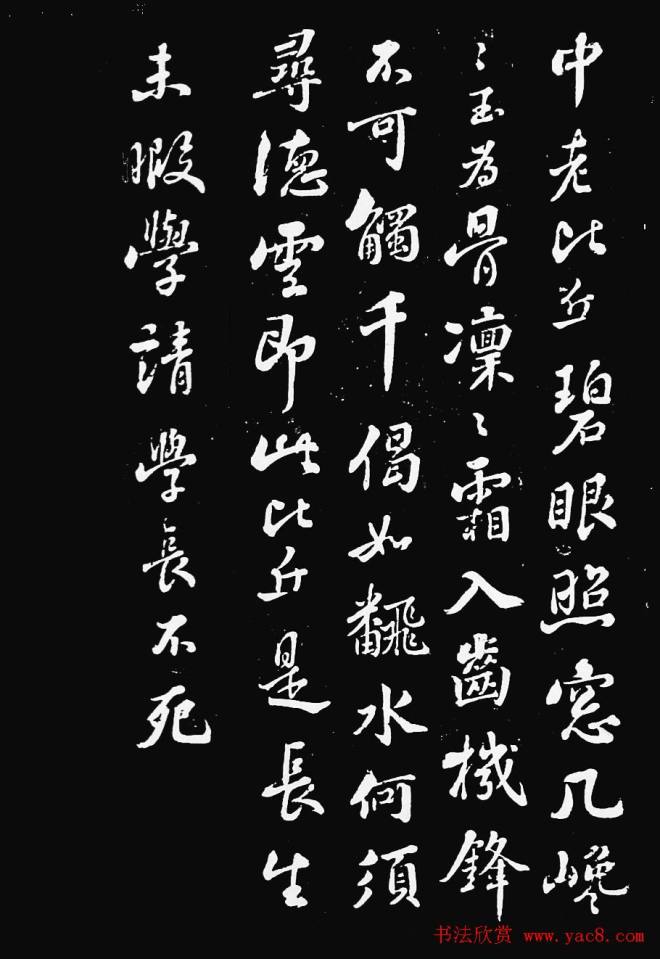 中老比丘碧眼照窓几巉
〻玉為骨凛〻霜入齒機鋒
不可觸千偈如飜水何須
尋德雲即此比丘是長生
未暇學請學長不死
书法欣赏 www.yac8.com